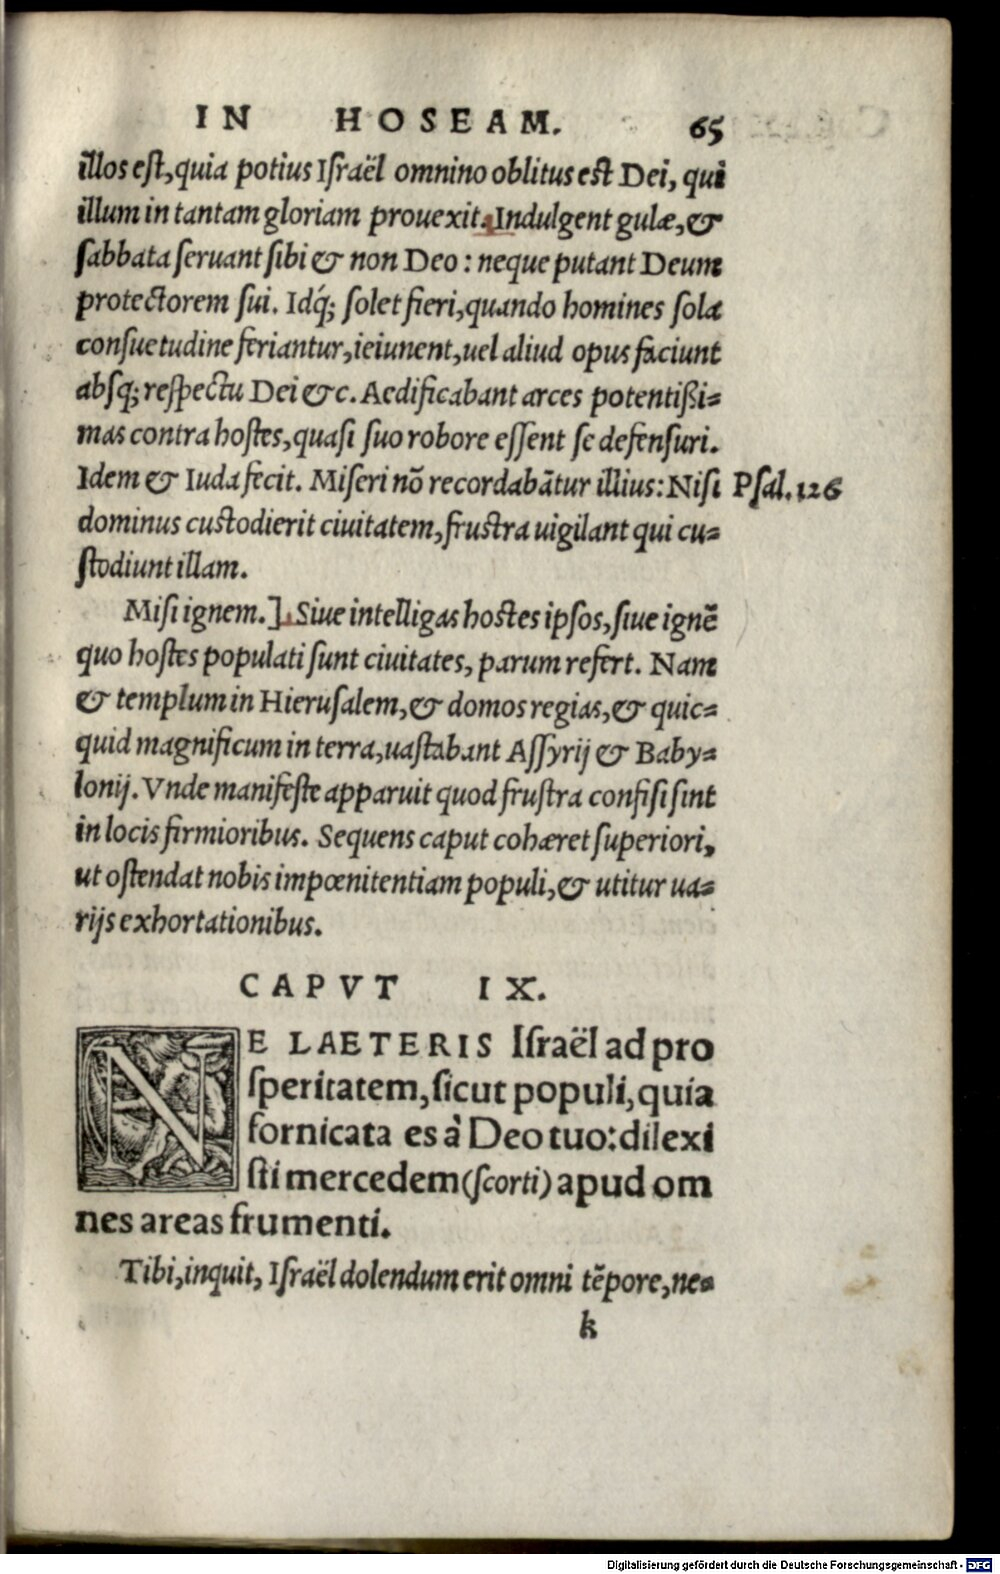 IN HOSEAM. 65
illos est, quia potius Israël omnino oblitus est Dei, qui
illum in tantam gloriam prouexit. Indulgent gulæ, &
sabbata seruant sibi & non Deo: neque putant Deum
protectorem sui. Idq́; solet fieri, quando homines sola
consuetudine feriantur, ieiunent, uel aliud opus faciunt
absq; respectu Dei &c. Aedificabant arces potentißi=
mas contra hostes, quasi suo robore essent se defensuri.
Idem & Iuda fecit. Miseri nō recordabātur illius: Nisi Psal. 126
dominus custodierit ciuitatem, frustra uigilant qui cu=
stodiunt illam.
Misi ignem.] Siue intelligas hostes ipsos, siue ignē
quo hostes populati sunt ciuitates, parum refert. Nam
& templum in Hierusalem, & domos regias, & quic=
quid magnificum in terra, uastabant Assyrij & Baby=
lonij. Vnde manifeste apparuit quod frustra confisi sint
in locis firmioribus. Sequens caput cohæret superiori,
ut ostendat nobis impœnitentiam populi, & utitur ua=
rijs exhortationibus.
CAPVT IX.
NE LAETERIS Israël ad pro
speritatem, sicut populi, quia
fornicata es à Deo tuo: dilexi
sti mercedem (scorti) apud om
nes areas frumenti.
Tibi, inquit, Israël dolendum erit omni tēpore, ne=
k
Digitalisierung gefördert durch die Deutsche Forschungsgemeinschaft - DFG